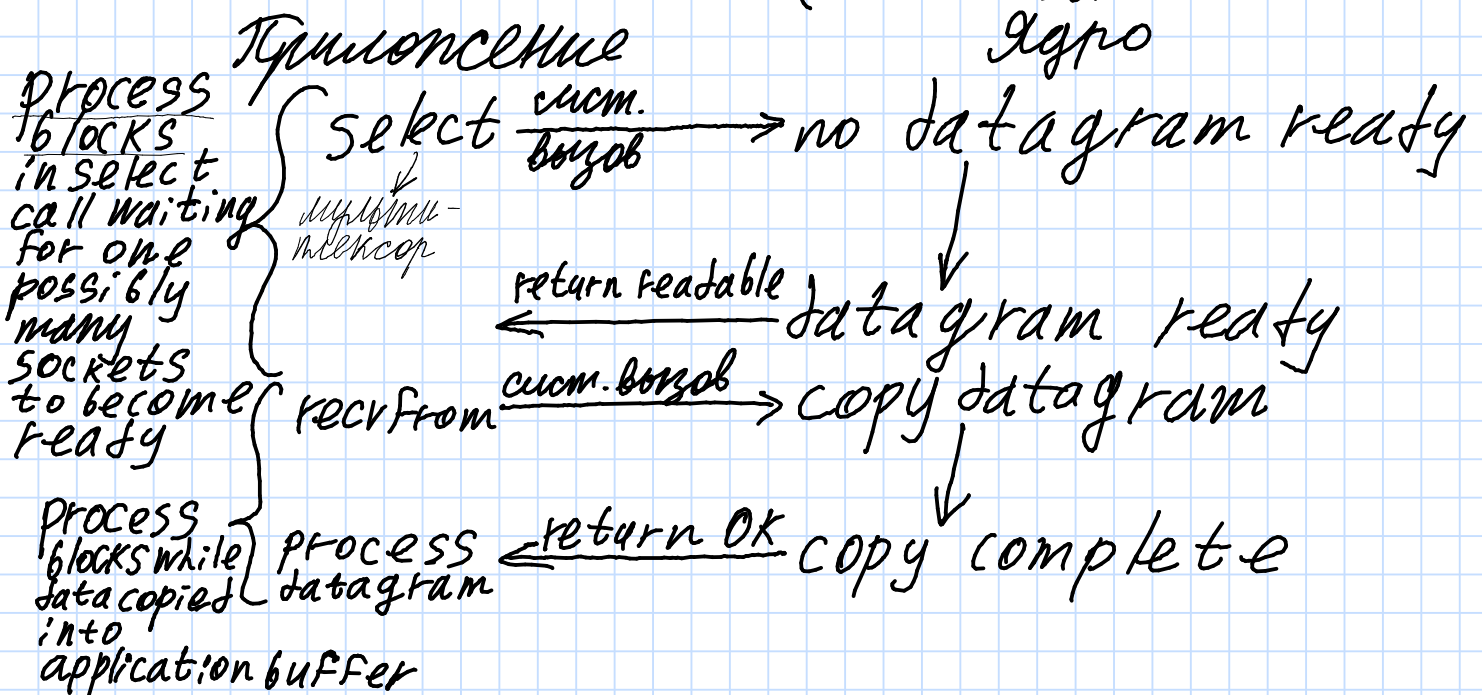 Приложение
Ядро
process
blocks
in select
call waiting
for one
possibly
many
sockets
to become
ready
select
сист.
вызов
no datagram ready
мульти-
плексор
return readable
datagram ready
recvfrom
сист. вызов
copy datagram
process
blocks while
data copied
into
application buffer
process
datagram
return OK
copy complete